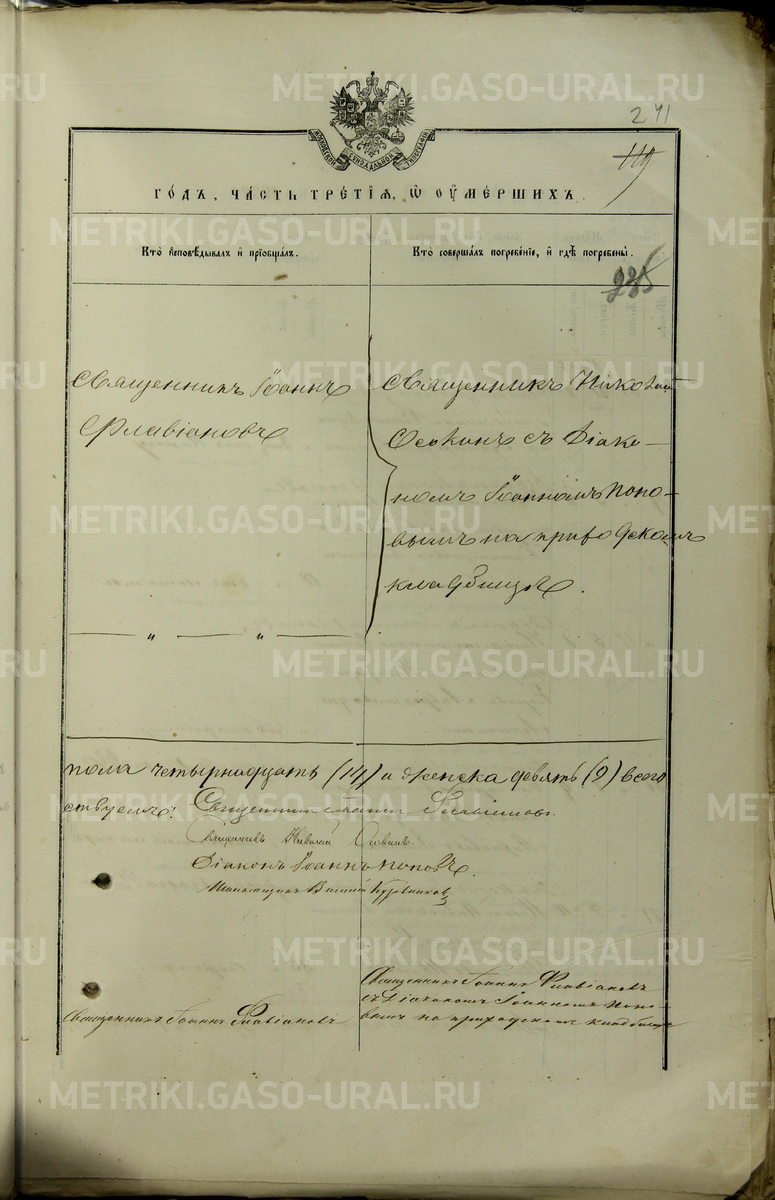 METRIKI.GASO-URAL.RU
241
119
МОСКОВСКОЙ СѴНОДАЛЬНОЙ ТИПОГРАФІИ
ГО́ДЪ, ЧА́СТЬ ТРЕ́ТІѦ, Ѡ҆ ОУ҆МЕ́РШИХЪ.
Кто̀ и҆сповѣ́дывалъ и҆ прїѡбща́лъ.
Кто̀ соверша́лъ погребе́нїе, и҆ гдѣ̀ погребены̀.
235
Священникъ Іоаннъ
Флавіановъ
Священникъ Николай
Осокинъ съ Діако-
номъ Іоанномъ Попо-
вымъ на приходскомъ
кладбищѣ.
— „ — „ —
пола четырнадцать (14) и женска девять (9) всего
ствуемъ: Священникъ Іоаннъ Флавіановъ.
Священникъ Николай Осокинъ.
Діаконъ Іоаннъ Поповъ.
Псаломщикъ Василій
Священникъ Іоаннъ Флавіановъ
Священникъ Іоаннъ Флавіановъ
съ Діакономъ Іоанномъ Попо-
вымъ на приходскомъ кладбищѣ